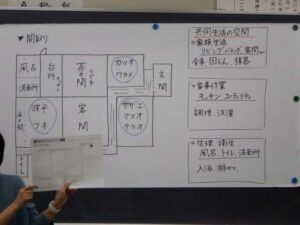 ▼間取り
風呂
洗面所
台所
キッチン
茶の間
リビング
カツオ
ワカメ
玄関
波平
フネ
客間
サザエ
マスオ
タラオ
トイレ
共同生活の空間
○家族生活
リビング
食事 団らん 接客
○家事作業
キッチン ユーティリティ
調理 洗濯
○生理・衛生
風呂 トイレ 洗面所
入浴